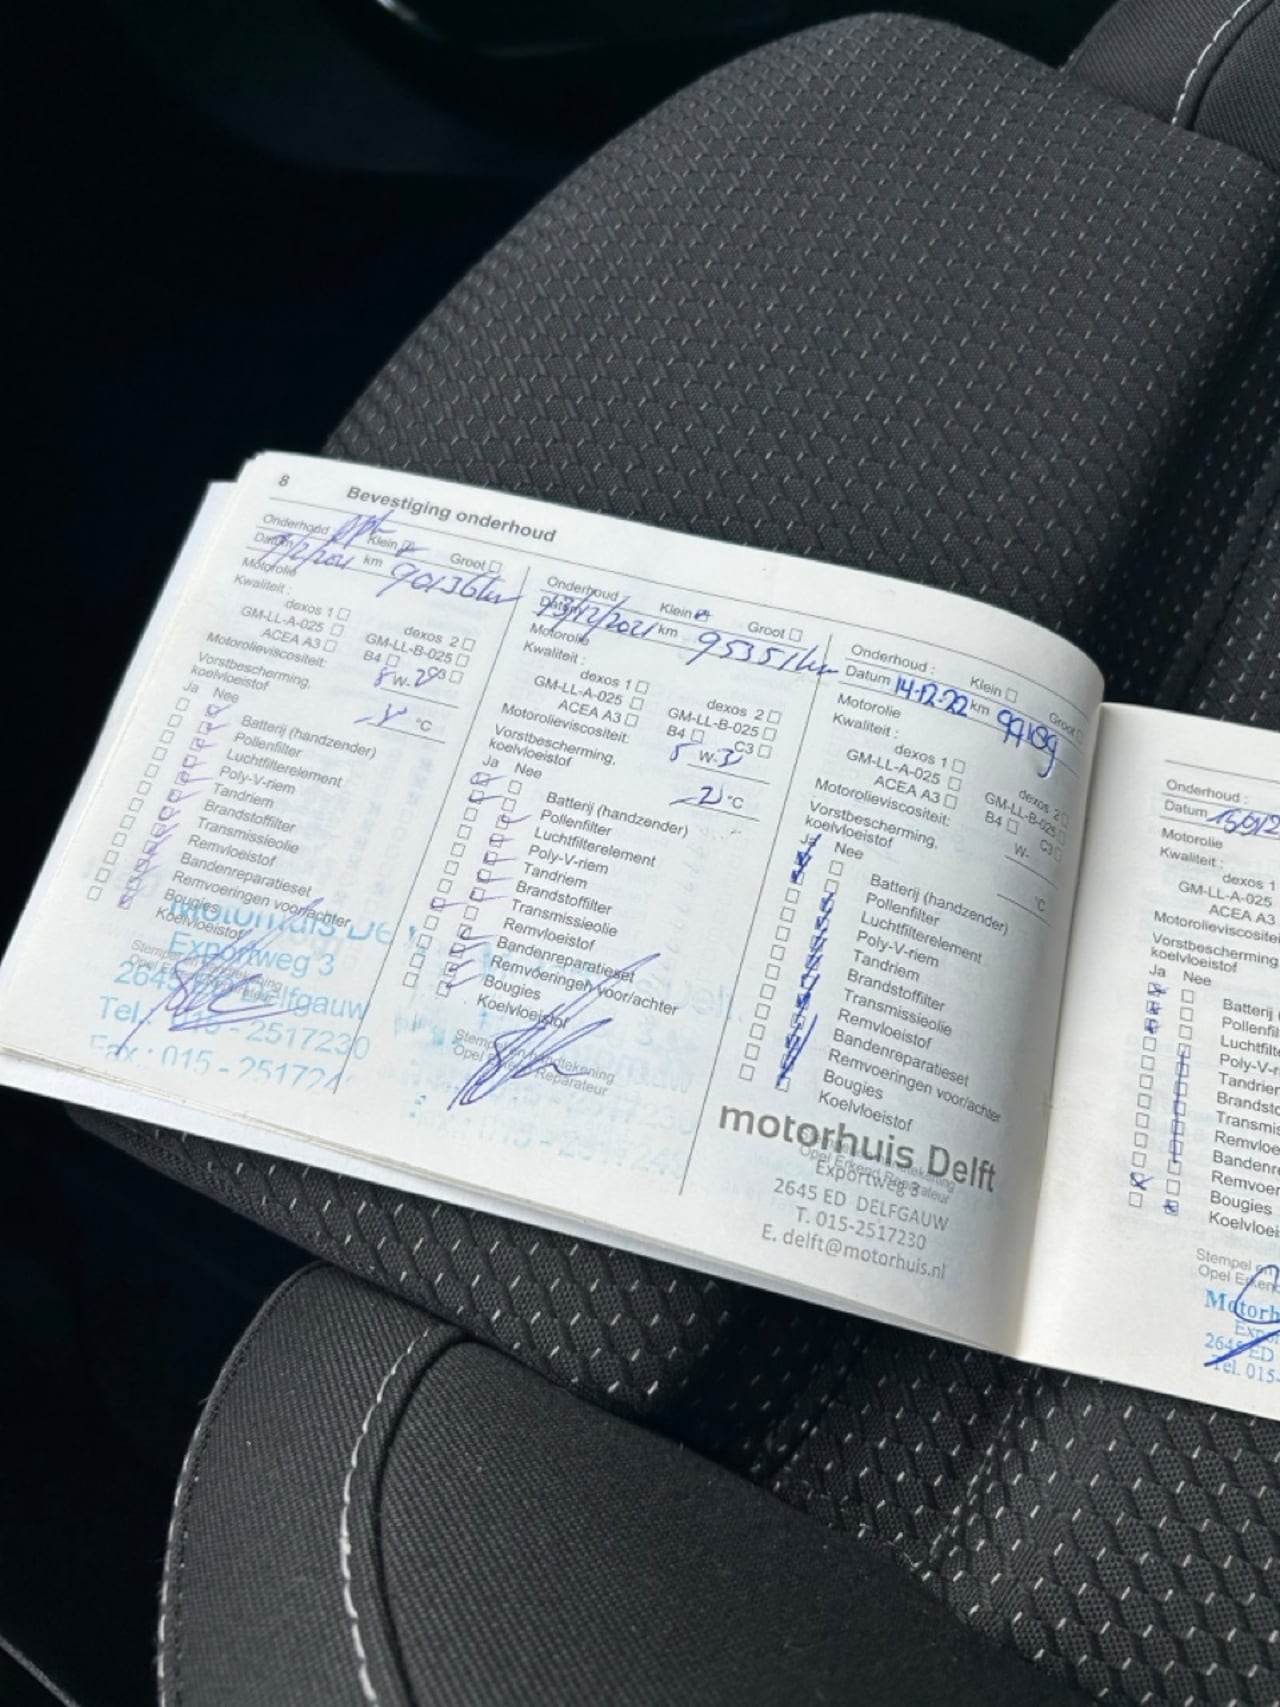 8 Bevestiging onderhoud
Onderhoud Klein Groot
Datum km 90136km
Motorolie
Kwaliteit :
dexos 1 dexos 2
GM-LL-A-025 GM-LL-B-025
ACEA A3 B4 C3
Motorolieviscositeit: W-
Vorstbescherming,
koelvloeistof °C
Ja Nee
Batterij (handzender)
Pollenfilter
Luchtfilterelement
Poly-V-riem
Tandriem
Brandstoffilter
Transmissieolie
Remvloeistof
Bandenreparatieset
Remvoeringen voor/achter
Bougies
Koelvloeistof
Stempel en handtekening
Opel Erkend
Motorhuis De
Exportweg 3
2645 Delfgauw
Tel.: 015 - 2517230
Fax : 015 - 251724
Onderhoud Klein Groot
Datum 13/12/2021 km 95351km
Motorolie
Kwaliteit :
dexos 1 dexos 2
GM-LL-A-025 GM-LL-B-025
ACEA A3 B4 C3
Motorolieviscositeit: W-
Vorstbescherming,
koelvloeistof °C
Ja Nee
Batterij (handzender)
Pollenfilter
Luchtfilterelement
Poly-V-riem
Tandriem
Brandstoffilter
Transmissieolie
Remvloeistof
Bandenreparatieset
Remvoeringen voor/achter
Bougies
Koelvloeistof
Stempel en handtekening
Opel Erkend Reparateur
Onderhoud : Klein Groot
Datum 14-12-22 km 99139
Motorolie
Kwaliteit :
dexos 1 dexos 2
GM-LL-A-025 GM-LL-B-025
ACEA A3 B4 C3
Motorolieviscositeit: W-
Vorstbescherming,
koelvloeistof °C
Ja Nee
Batterij (handzender)
Pollenfilter
Luchtfilterelement
Poly-V-riem
Tandriem
Brandstoffilter
Transmissieolie
Remvloeistof
Bandenreparatieset
Remvoeringen voor/achter
Bougies
Koelvloeistof
Stempel en handtekening
Opel Erkend Reparateur
motorhuis Delft
Exportweg 3
2645 ED DELFGAUW
T. 015-2517230
E. delft@motorhuis.nl
Onderhoud :
Datum
Motorolie
Kwaliteit :
dexos 1
GM-LL-A-025
ACEA A3
Motorolieviscositei
Vorstbescherming
koelvloeistof
Ja Nee
Batterij
Pollenfilt
Luchtfilte
Poly-V-r
Tandrier
Brandst
Transmis
Remvloe
Bandenr
Remvoer
Bougies
Koelvloei
Stempel en
Opel Erkend
Motorh
Expor
2645 ED
Tel. 015-